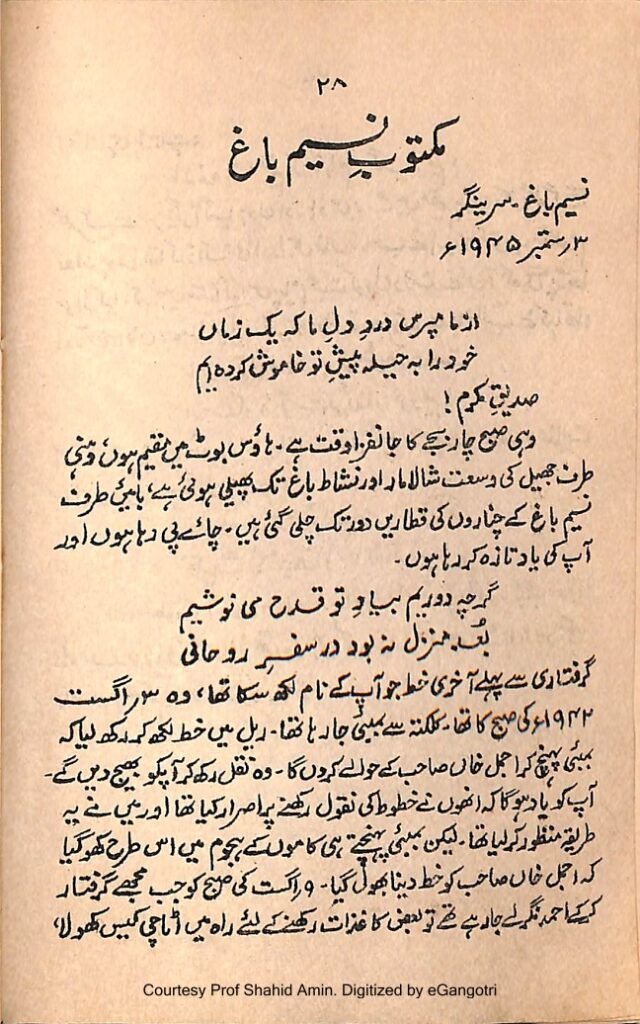 ۲۸
مکتوبِ نسیم باغ
نسیم باغ۔ سرینگر
۳ ستمبر ۱۹۴۵ء
از ما مپرس دردِ دلِ ما کہ یک زماں
خود را بہ حیلہ پیشِ تو خاموش کردہ ایم
صدیقِ مکرم!
وہی صبح چار بجے کا جانفزا وقت ہے۔ ہاؤس بوٹ میں مقیم ہوں، دہنی
طرف جھیل کی وسعت شالامار اور نشاط باغ تک پھیلی ہوئی ہے، بائیں طرف
نسیم باغ کے چناروں کی قطاریں دور تک چلی گئی ہیں۔ چائے پی رہا ہوں اور
آپ کی یاد تازہ کر رہا ہوں۔
گرچہ دوریم بیادِ تو قدح می نوشیم
بُعدِ منزل نہ بود در سفرِ روحانی
گرفتاری سے پہلے آخری خط جو آپ کے نام لکھ سکا تھا، وہ ۳ اگست
۱۹۴۲ء کی صبح کا تھا۔ کلکتہ سے بمبئی جا رہا تھا۔ ریل میں خط لکھ کر رکھ لیا کہ
بمبئی پہنچ کر اجمل خاں صاحب کے حوالے کروں گا۔ وہ نقل رکھ کر آپکو بھیج دیں گے۔
آپ کو یاد ہوگا کہ انھوں نے خطوط کی نقول رکھنے پر اصرار کیا تھا اور میں نے یہ
طریقہ منظور کر لیا تھا۔ لیکن بمبئی پہنچتے ہی کاموں کے ہجوم میں اس طرح کھو گیا
کہ اجمل خاں صاحب کو خط دینا بھول گیا۔ ۹ اگست کی صبح کو جب مجھے گرفتار
کرکے احمد نگر لے جا رہے تھے تو بعض کاغذات رکھنے کے لئے راہ میں اٹاچی کیس کھولا،
Courtesy Prof Shahid Amin. Digitized by eGangotri